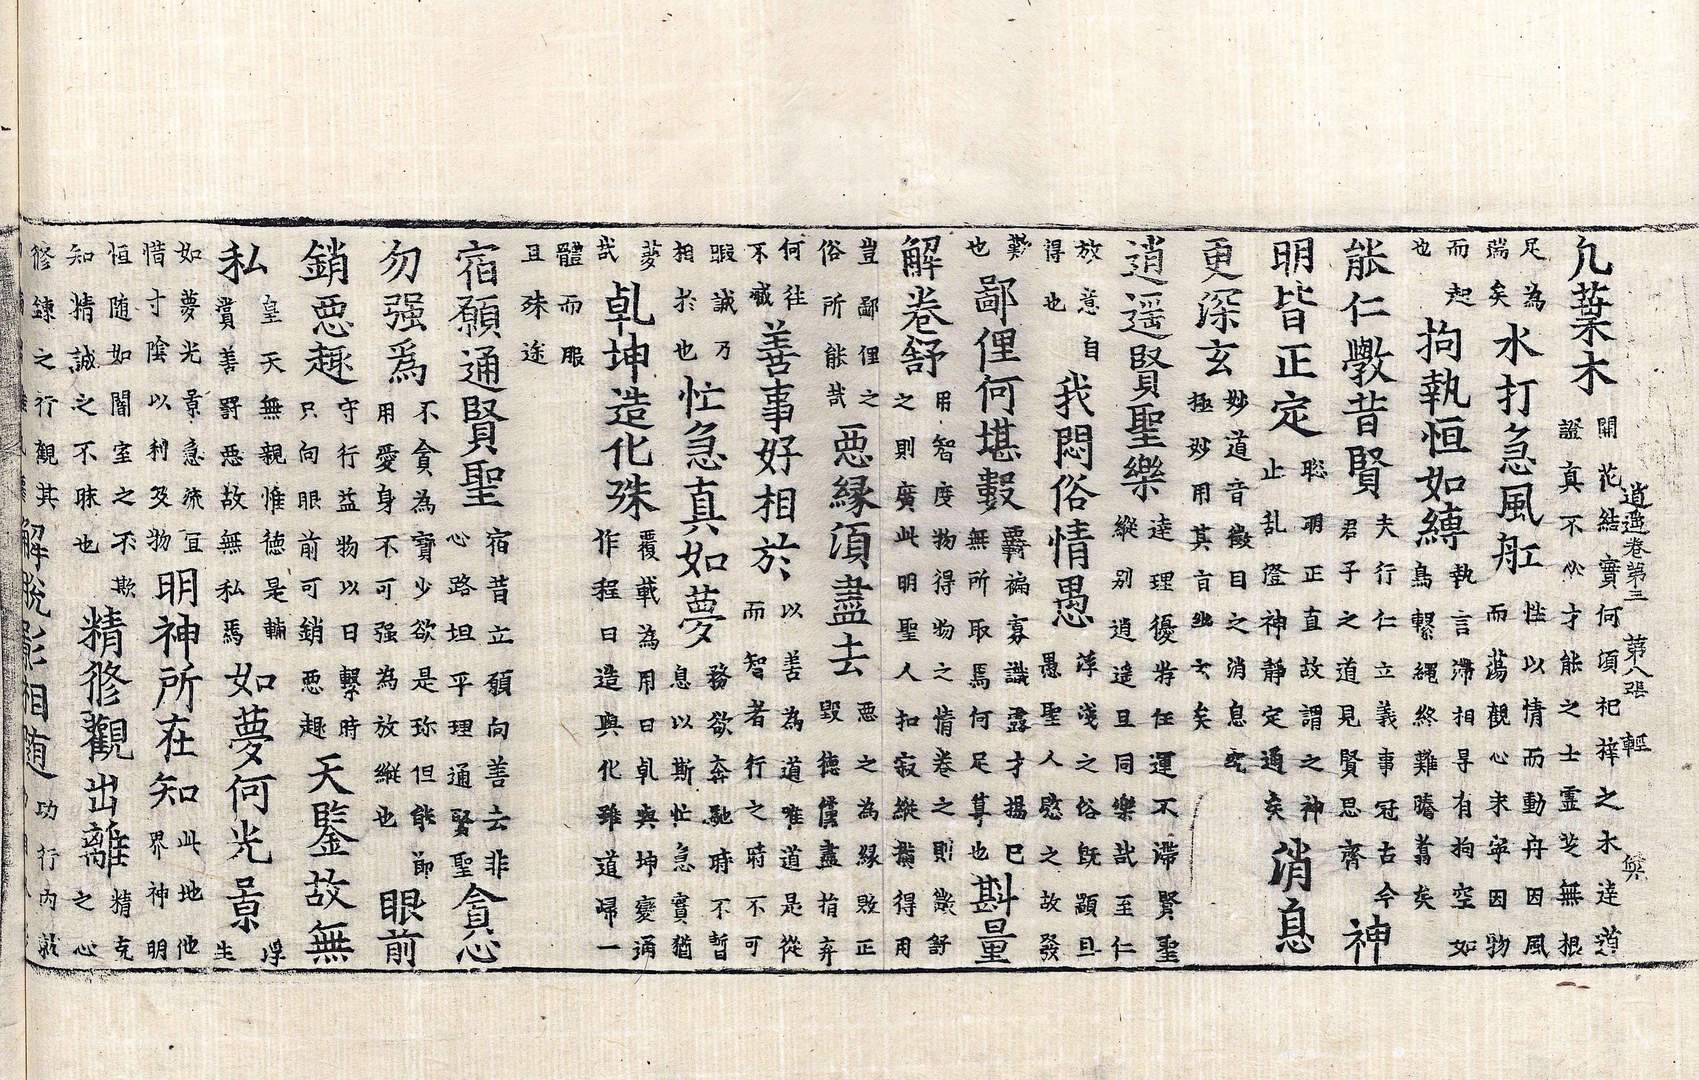 逍遥卷第三 第八張 輕
凢葉木 開花結實何須祀梓之木達道
證真不必才能之士霊芝無根
足為
端矣 水打急風舡 性以情而動舟因風
而蕩觀心求寧因物
而起
也 拘執恒如縛 執言滯相㝵有拘空如
鳥繋縄終難騰翥矣
能仁斆昔賢 夫行仁立義事冠古今
君子之道見賢思齊 神
明皆正定 聡明正直故謂之神
止乱澄神静定通矣 消息
更深玄 妙道音徽目之消息
極妙用其旨幽玄矣
逍遥賢聖樂 達理優游任運不滯賢聖
縱別逍遥且同樂哉至仁
放意自
得也 我悶俗情愚 淺之俗旣顓且
愚聖人愍之故發
歎
也 鄙俚何堪數 褊寡識露才揚已
無所取焉何足算也 斟量
解卷舒 用智度物得物之情卷之則歛舒
之則廣此明聖人扣寂縱橫得用
豈鄙俚之
俗所能哉 惡縁須盡去 惡之為縁敗正
毁德儘盡捐弃
何往
不臧 善事好相於 以善為道唯道是從
而智者行之時不可
暇誠乃
相於也 忙急真如夢 務欲奔馳時不暫
息以斯忙急實猶
夢
哉 乹坤造化殊 覆載為用曰乹與坤變通
作程曰造與化雖道㱕一
體而服
且殊途
宿願通賢聖 宿昔立願向善去非
心路坦平理通賢聖 貪心
勿强爲 不貪為寳少欲是珎但能節
用愛身不可强為放縱也 眼前
銷惡趣 守行益物以日繫時
只向眼前可銷惡趣 天鑒故無
私 皇天無親惟德是輔
賞善罰惡故無私焉 如夢何光景 浮
生
如夢光景急流亘
惜寸隂以利及物 明神所在知 此地他
界神明
恒随如闇室之不欺
知精誠之不昧也 精修觀出離 精克
之心
修錬之行觀其
解脫影相随 功行内就